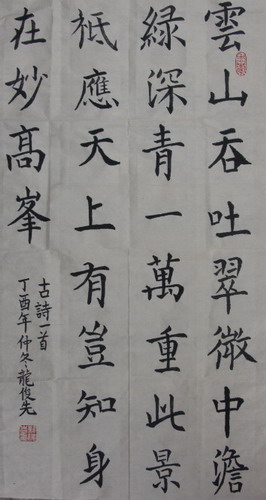 雲山吞吐翠微中澹
綠深青一萬重此景
祗應天上有豈知身
在妙高峯
古詩一首
丁酉年仲冬龍俊先